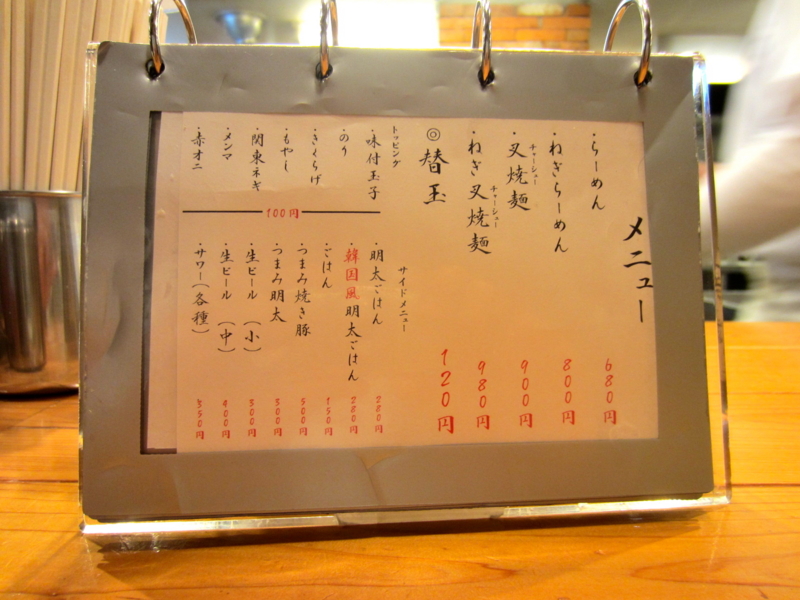 メニュー
・らーめん 680円
・ねぎらーめん 800円
・叉焼麺 900円
チャーシュー
・ねぎ叉焼麺 980円
チャーシュー
◎替玉 120円
トッピング
・味付玉子
・のり
・きくらげ
・もやし
・関東ネギ
・メンマ
・赤オニ
100円
サイドメニュー
・明太ごはん 280円
・韓国風明太ごはん 280円
・ごはん 150円
・つまみ焼き豚 500円
・つまみ明太 300円
・生ビール(小) 300円
・生ビール(中) 400円
・サワー(各種) 350円